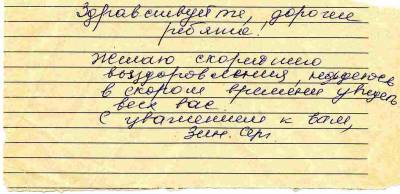 Здравствуйте, дорогие
ребята!
Желаю скорейшего
выздоровления, надеюсь
в скором времени увидеть
всех вас.
С уважением к вам,
Зин. Серг.